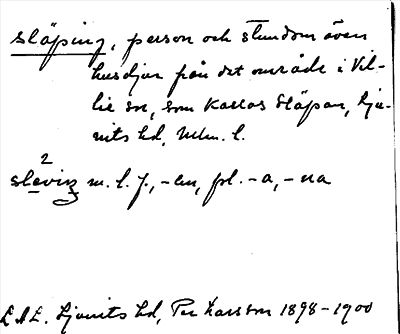 släping, person och stundom även
husdjur från det område i Vil-
lie sn, som kallas Släpan, Lju-
nits hd, Mlm. l.
2
slèving m. l. f., -en, pl. -a, -na
L.A.L. Ljunits hd, Per Larsson 1898-1900